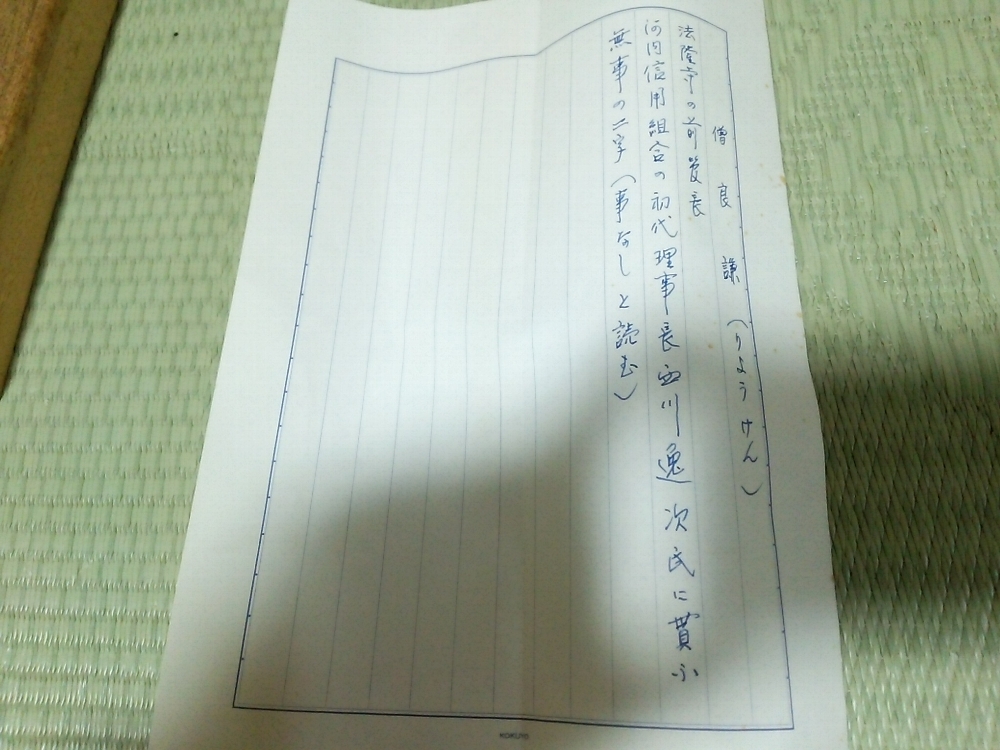 僧良謙(りようけん)
法隆寺の前管長
河内信用組合の初代理事長西川逸次氏に貰ふ
無事の二字(事なしと読む)
KOKUYO